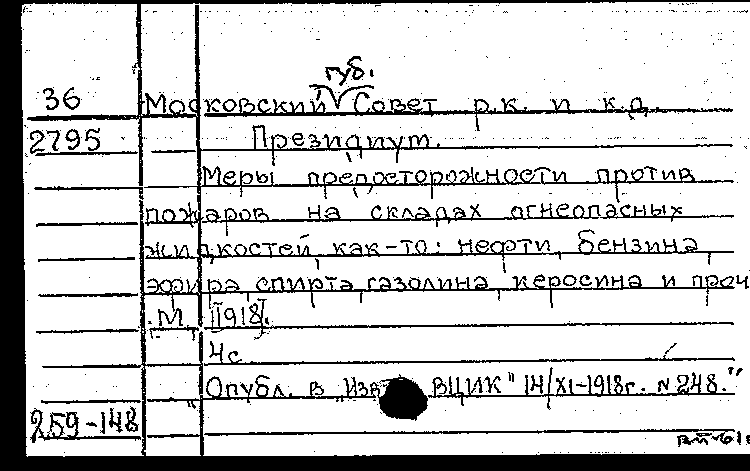 губ.
36 Московский Совет р.к. и к.д.
2795 Президиум.
Меры предосторожности против
пожаров на складах огнеопасных
жидкостей, как-то: нефти, бензина,
эфира, спирта, газолина, керосина и проч
М. [1918].
4с
Опубл. в "Изв ВЦИК" 14/XI-1918г. №248."
259-148